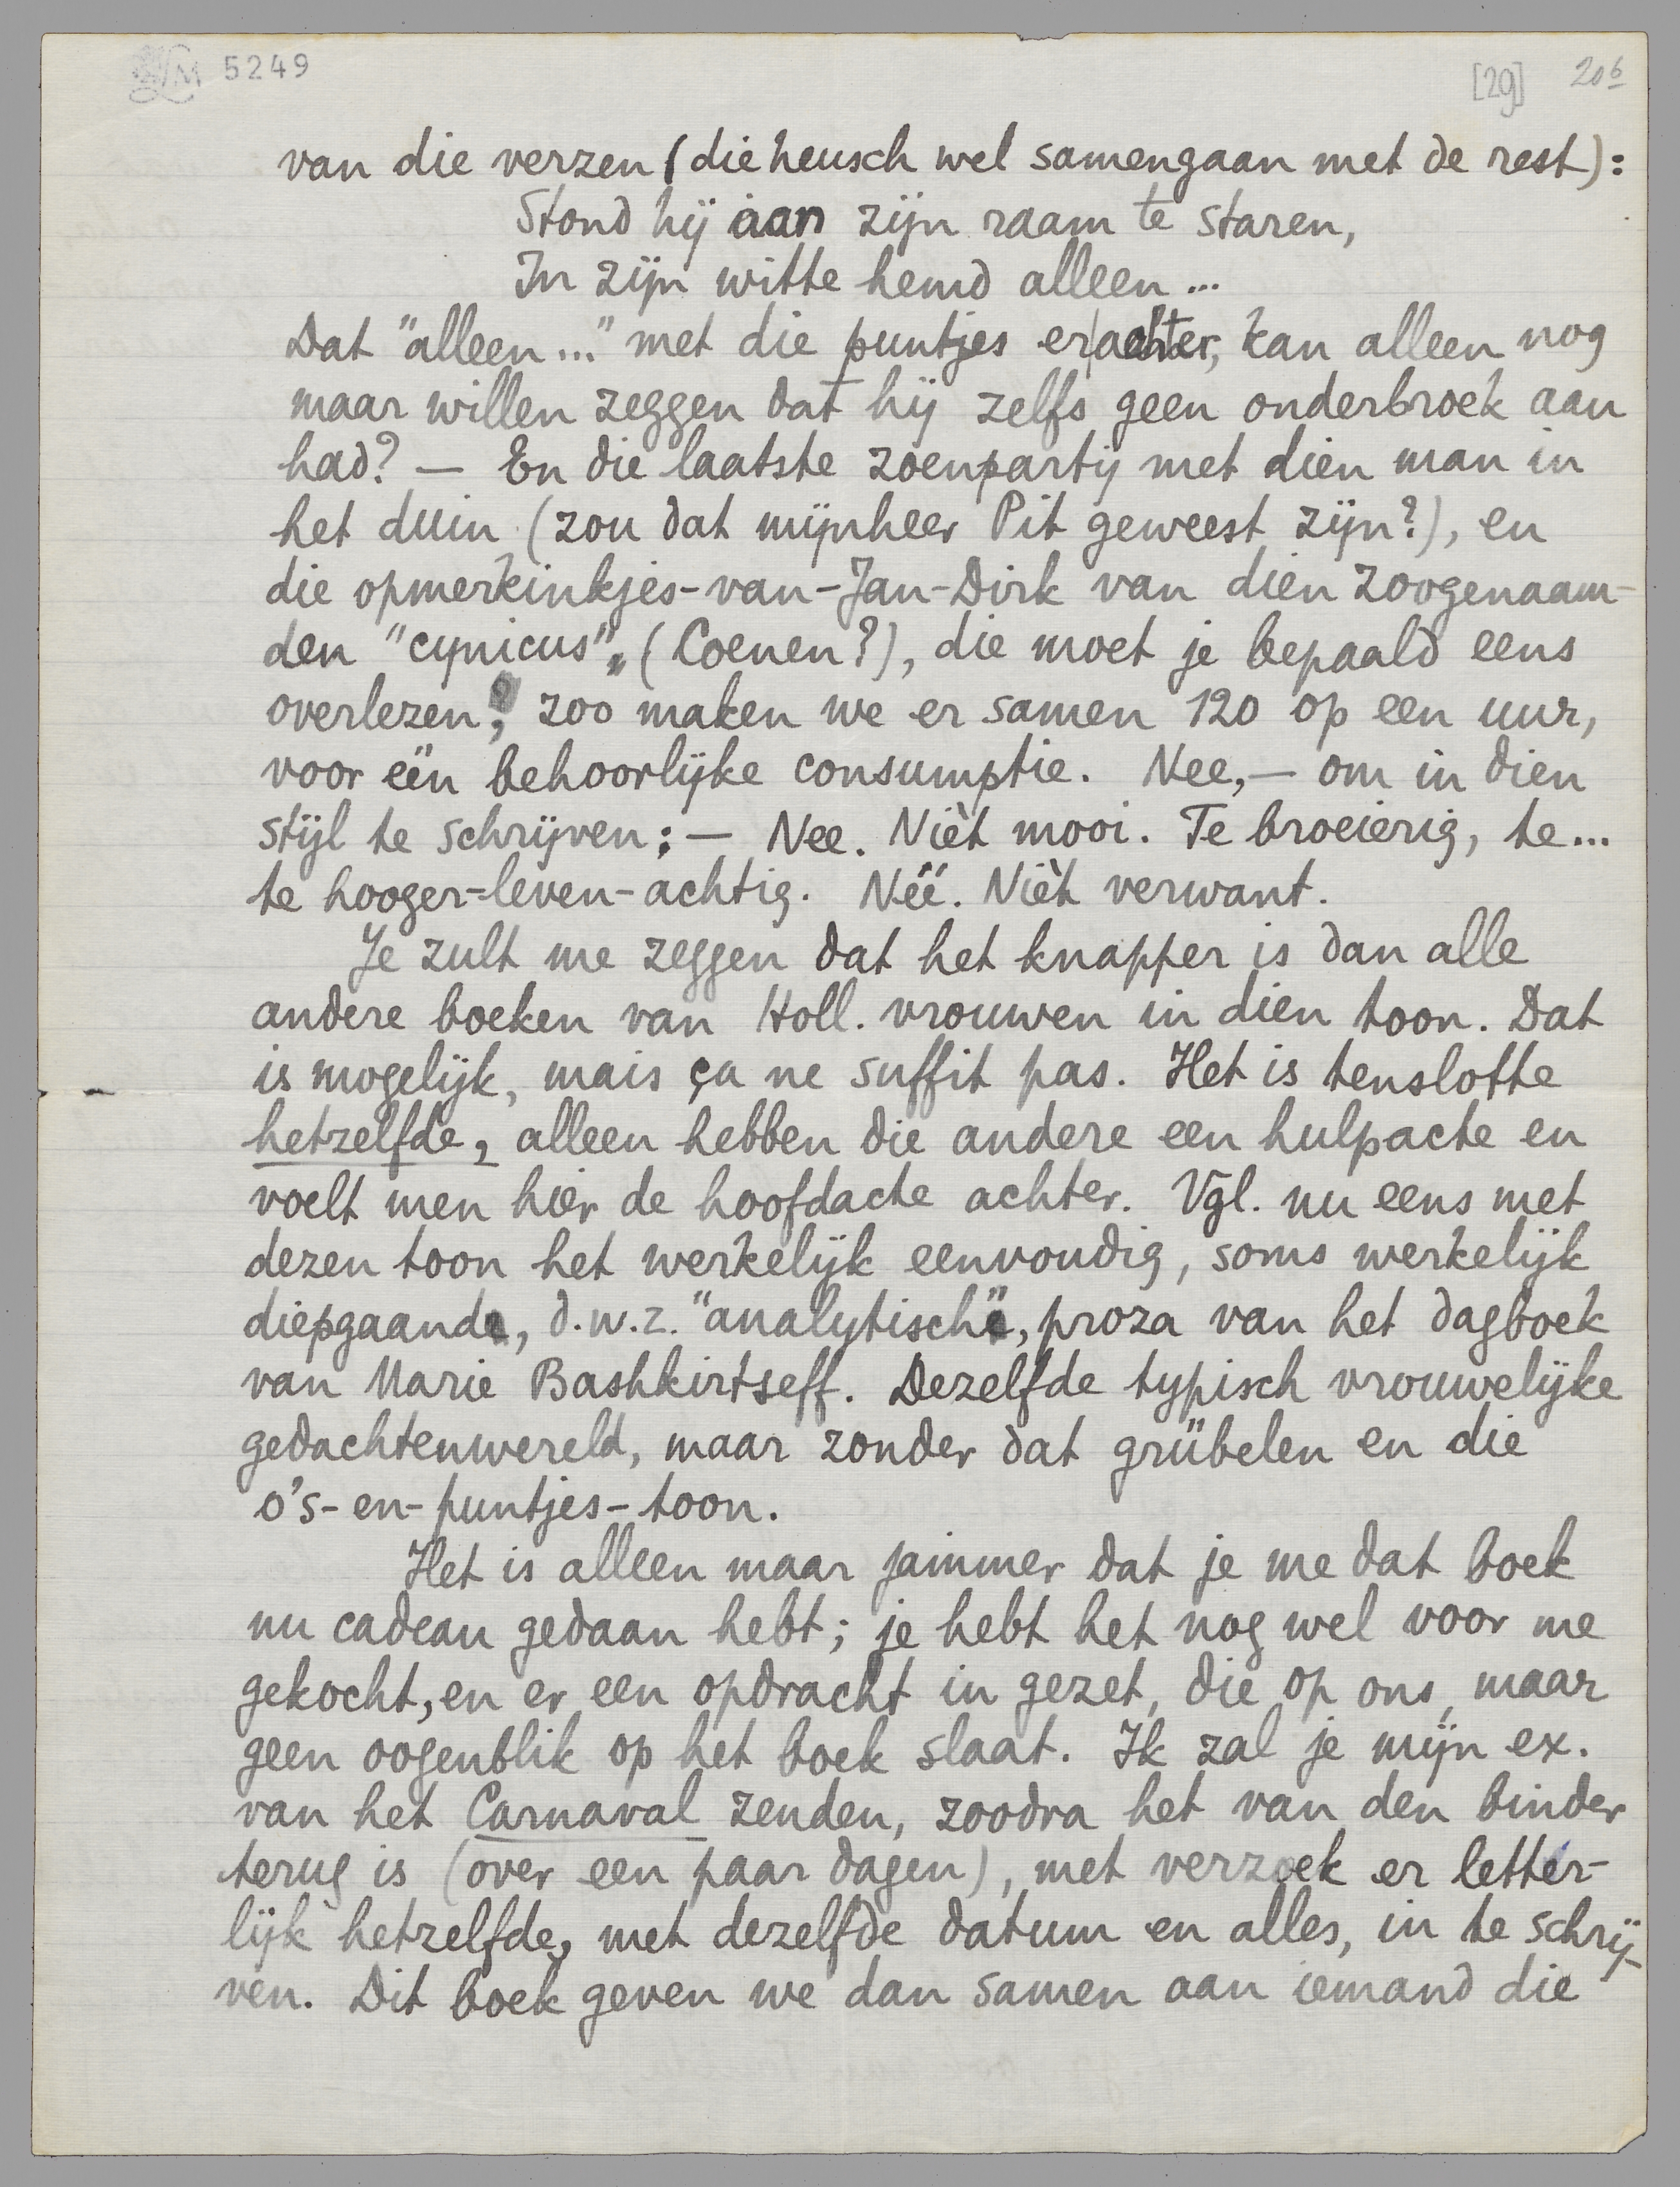 5249
[29] 206
van die verzen (die heusch wel samengaan met de rest):
Stond hij aan zijn raam te staren,
In zijn witte hemd alleen...
Dat "alleen..." met die puntjes erachter, kan alleen nog
maar willen zeggen dat hij zelfs geen onderbroek aan
had? — En die laatste zoenpartij met dien man in
het duin (zou dat mijnheer Pit geweest zijn?), en
die opmerkinkjes-van-Jan-Dirk van dien zoogenaam-
den "cynicus", (Coenen?), die moet je bepaald eens
overlezen; zoo maken we er samen 120 op een uur,
voor één behoorlijke consumptie. Nee,— om in dien
stijl te schrijven: — Nee. Nièt mooi. Te broeierig, te...
te hooger-leven-achtig. Néé. Nièt verwant.
Je zult me zeggen dat het knapper is dan alle
andere boeken van Holl. vrouwen in dien toon. Dat
is mogelijk, mais ça ne suffit pas. Het is tenslotte
hetzelfde, alleen hebben die andere een hulpacte en
voelt men hier de hoofdacte achter. Vgl. nu eens met
dezen toon het werkelijk eenvoudig, soms werkelijk
diepgaande, d.w.z. "analytische", proza van het dagboek
van Marie Bashkirtseff. Dezelfde typisch vrouwelijke
gedachtenwereld, maar zonder dat grübelen en die
o's-en-puntjes-toon.
Het is alleen maar jammer dat je me dat boek
nu cadeau gedaan hebt; je hebt het nog wel voor me
gekocht, en er een opdracht in gezet, die op ons, maar
geen oogenblik op het boek slaat. Ik zal je mijn ex.
van het Carnaval zenden, zoodra het van den binder
terug is (over een paar dagen), met verzoek er letter-
lijk hetzelfde, met dezelfde datum en alles, in te schrij-
ven. Dit boek geven we dan samen aan iemand die